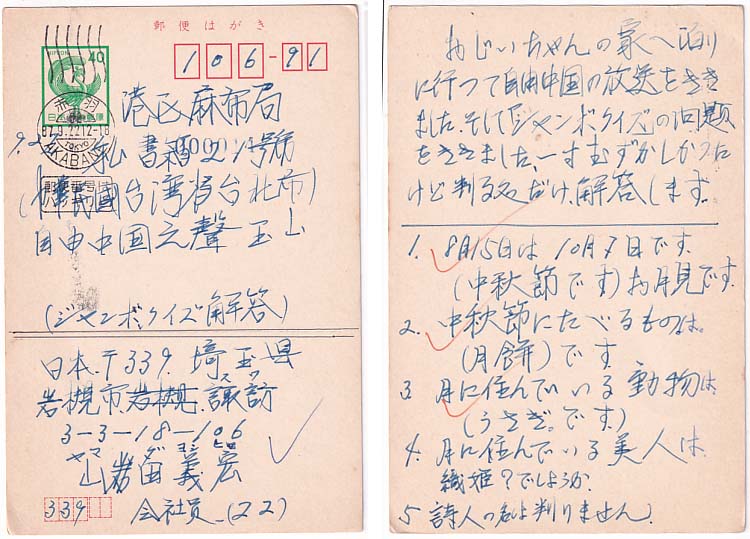 郵便はがき
NIPPON
40
日本郵便
赤羽
87.9.22 12-18
TOKYO
AKABANE
106-91
港区麻布局
私書箱 21号
(中華民國台湾省台北市)
自由中国之聲 玉山
(ジャンボ.クイズ解答)
日本.〒339. 埼玉県
岩槻市.岩槻.諏訪
3-3-18-106
義宏
339
会社員.(22)
おじいちゃんの家へ泊り
に行って自由中国の放送をきき
ました.そして「ジャンボクイズ」の問題
をききました.一寸むずかしかった
けど判る處だけ.解答します.
1. 8月15日は10月7日です.
(中秋節です)お月見です.
2. 中秋節にたべるものは.
(月餅)です.
3. 月に住んでいる動物は
(うさぎ.です.)
4. 月に住んでいる美人は.
織姫?でしょうか.
5. 詩人の名は判りません.